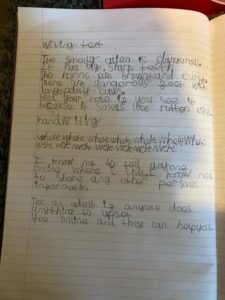 Writing text
The smelly alien is dangerous.
It has big sharp teeth
The horns are brown and curly.
There are dangerously feet with
long claws.
Hold your nose if you see it
because it smells like rotten eggs.
handwriting
whole whole whole whole whole whole whole
wrote wrote wrote wrote wrote wrote
I know not to tell anyone
online where I live. I know not
to share any other personal
information.
Tell an adult if anyone does
anything to upset
you online and they can help you.